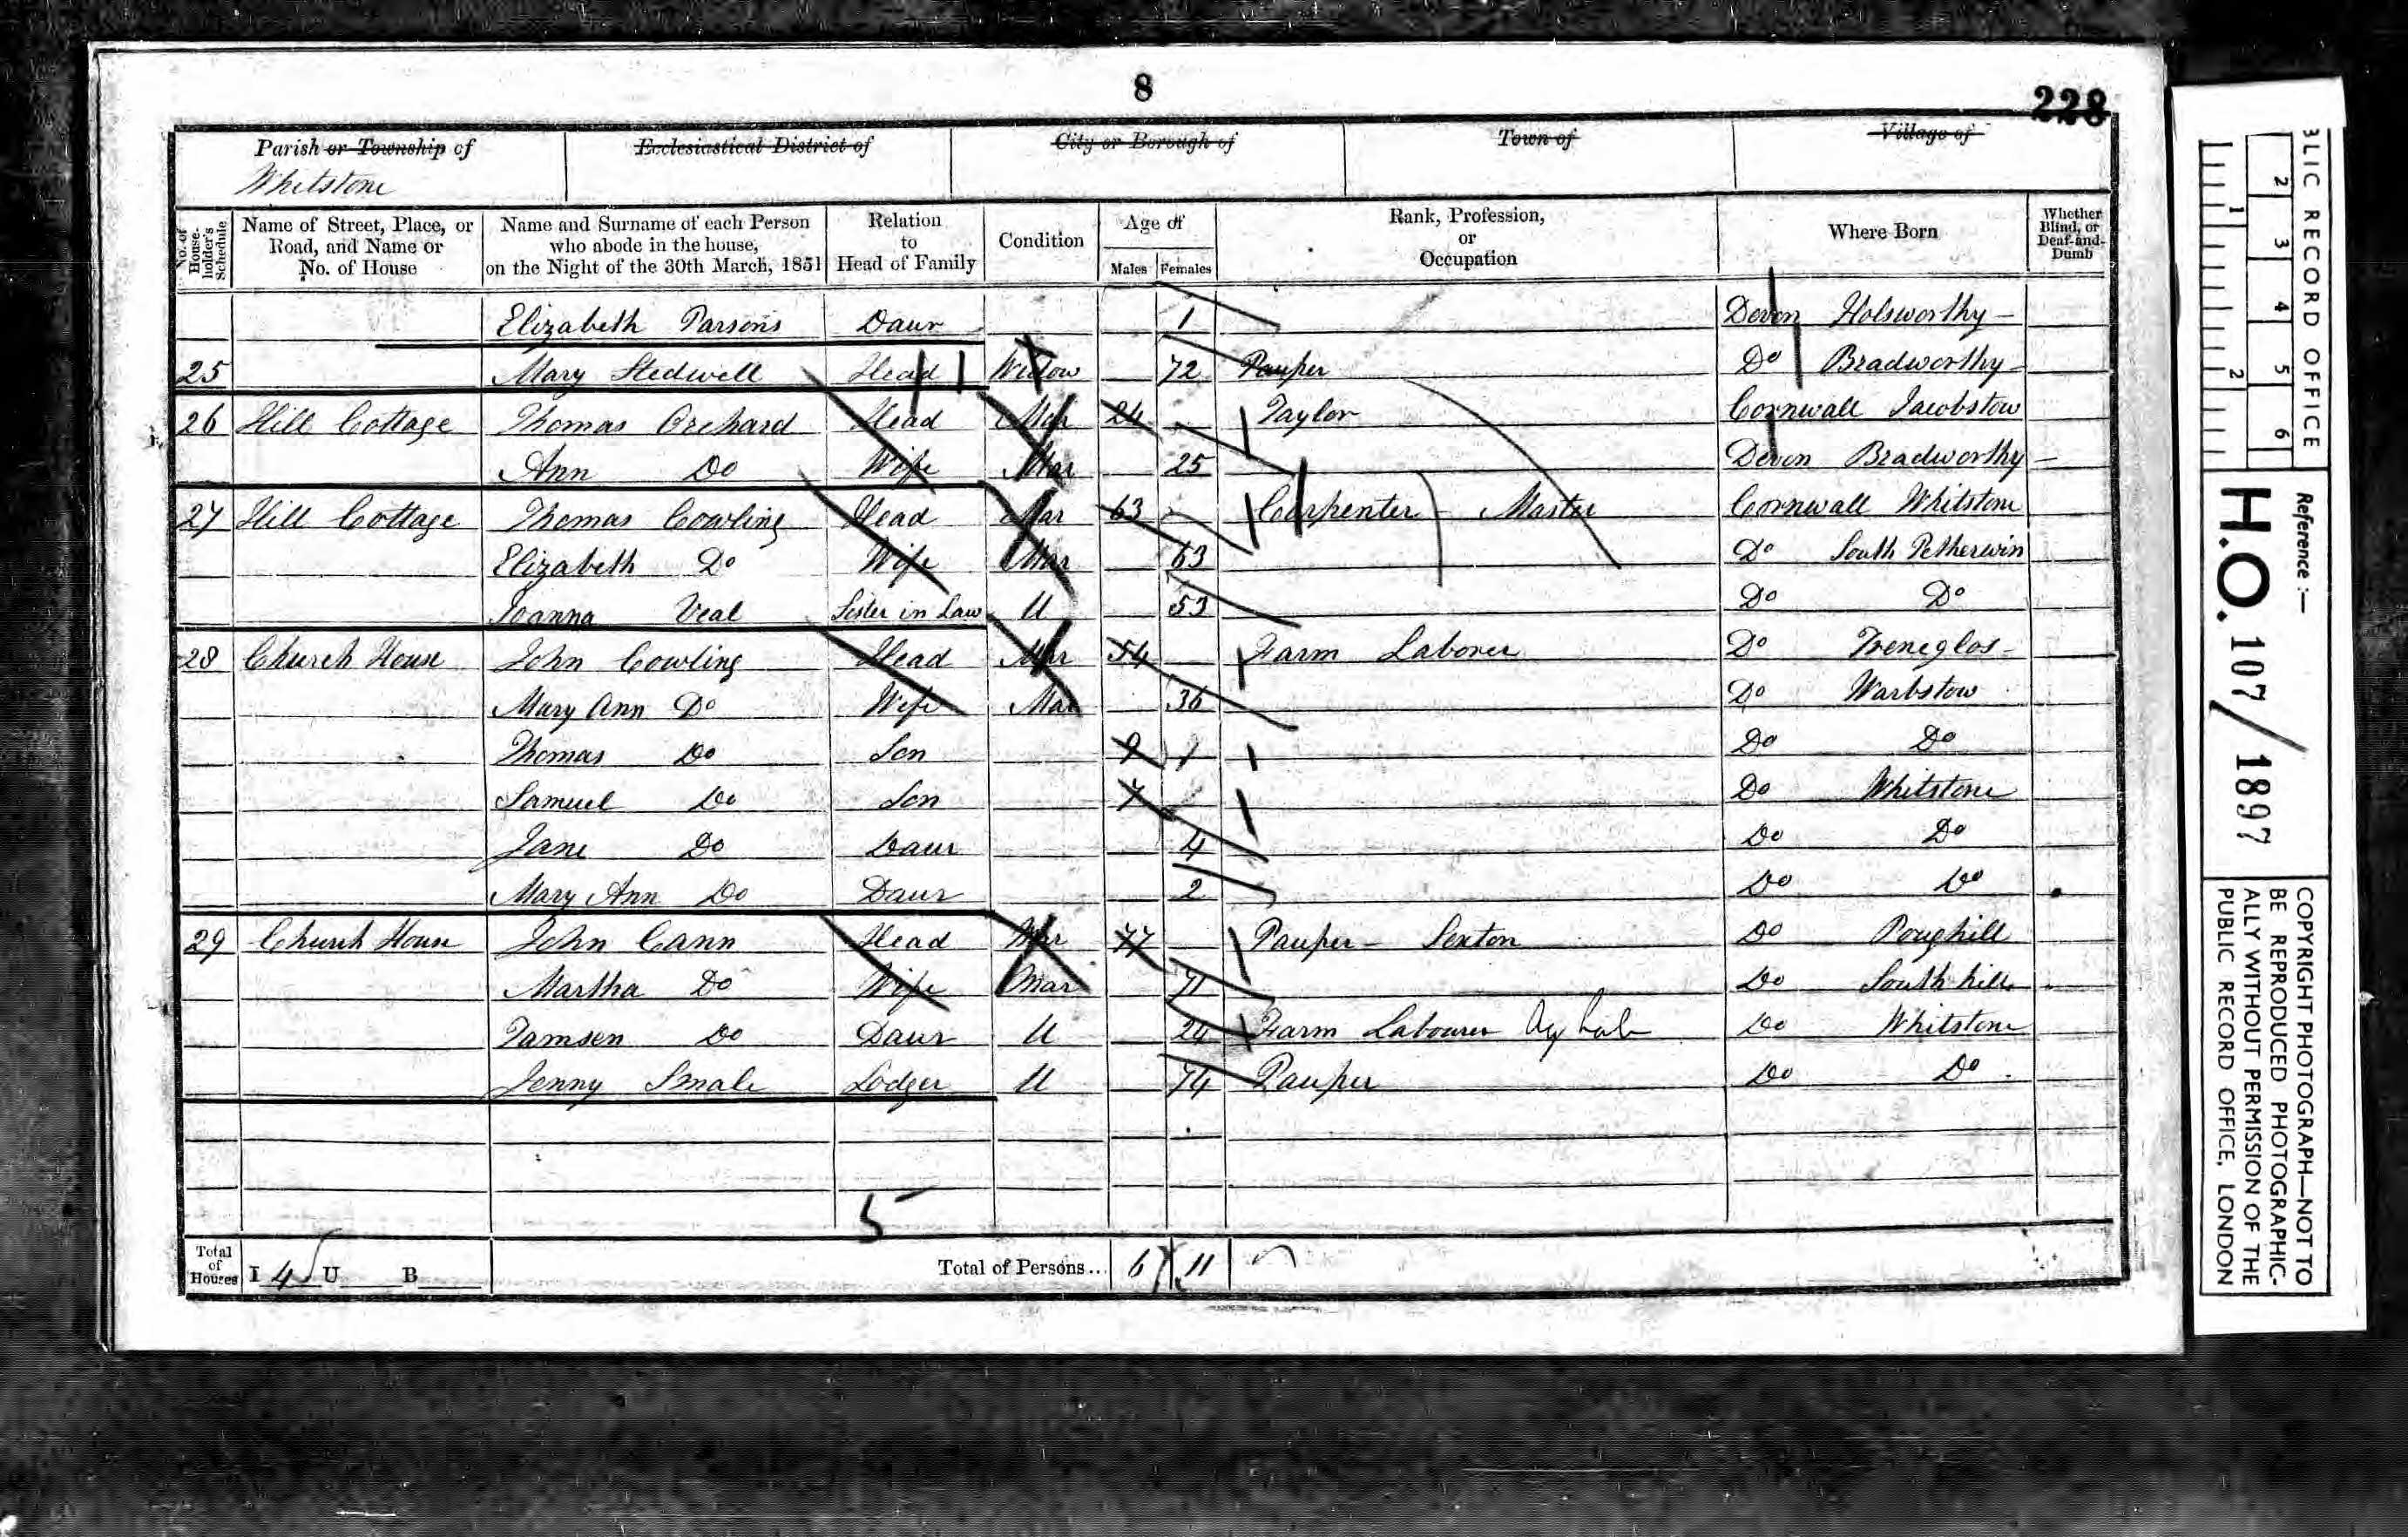 8
228
Parish or Township of
Whitstone
Ecclesiastical District of
City or Borough of
Town of
Village of
No. of House-holder's Schedule
Name of Street, Place, or Road, and Name or No. of House
Name and Surname of each Person who abode in the house, on the Night of the 30th March, 1851
Relation to Head of Family
Condition
Age of
Males Females
Rank, Profession, or Occupation
Where Born
Whether Blind, or Deaf-and-Dumb
Elizabeth Parsons Daur 1 Devon Holsworthy
25 Mary Head Widow 72 Pauper Do Bradworthy
26 Hill Cottage Thomas Orchard Head Mar 24 Taylor Cornwall Jacobstow
Ann Do Wife Mar 25 Devon Bradworthy
27 Hill Cottage Thomas Cowling Head Mar 63 Carpenter - Master Cornwall Whitstone
Elizabeth Do Wife Mar 63 Do South Petherwin
Joanna Veal Sister in Law U 53 Do Do
28 Church House John Cowling Head Mar 54 Farm Laborer Do Treneglos
Mary Ann Do Wife Mar 36 Do Warbstow
Thomas Do Son 9 Do Do
Samuel Do Son 7 Do Whitstone
Jane Do Daur 4 Do Do
Mary Ann Do Daur 2 Do Do
29 Church House John Cann Head Mar 77 Pauper - Sexton Do Poughill
Martha Do Wife Mar 71 Do South hill
Tamsen Do Daur U 24 Farm Labourer Ag Lab Do Whitstone
Jenny Smale Lodger U 74 Pauper Do Do
5
Total of Houses I 4 U B Total of Persons... 6 11
BLIC RECORD OFFICE
1 2
2 3 4 5 6
Reference :-
H.O. 107/1897
COPYRIGHT PHOTOGRAPH—NOT TO
BE REPRODUCED PHOTOGRAPHIC-
ALLY WITHOUT PERMISSION OF THE
PUBLIC RECORD OFFICE, LONDON